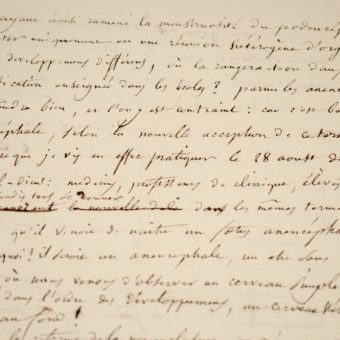 ayant ainsi ramené la monstruosité du podencép
rer uniquement en une réunion hétérogène d'org
developpemens différens, où la rangera-t-on dans
ication enseignée dans les écoles? parmi les anen
tendra bien, et l'on y est contraint: car c'est bi
céphale, selon la nouvelle acception de ce term
ce que je vis en effet pratiquer le 28 aoust de
l-Dieu: médecins, professeurs de clinique, élèves
tous se
la nouvelle de la dans les mêmes terme
qu'il venoit de naître un fœtus anencépha
quoi! il seroit un anencéphale, un che sans
où nous venons d'observer un cerveau simple
dans l'ordre des développemens, un cerveau
au fond!